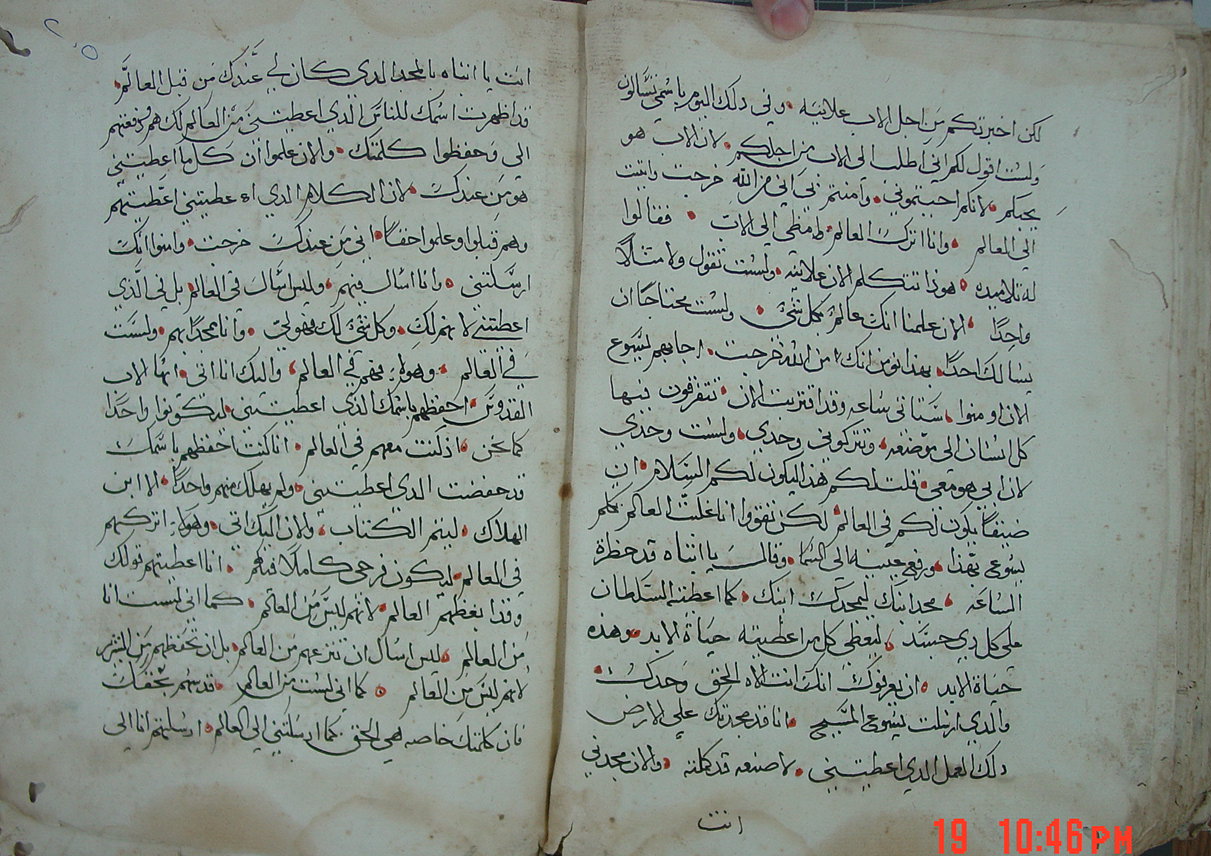 لكن اخبرتكم من اجل الاب علانيه وفي دلك اليوم باسمي تسالون
ولست اقول لكم اني اطلب الى الاب من اجلكم لان الاب هو
يحبكم لانكم احببتموني وامنتم بي اني من الله خرجت واتيت
الي العالم وانا اترك العالم وامضي الي الاب فقالوا
له تلاميده هودا تتكلم الان علانيه ولست تقول ولا مثلاً
واحدًا الان علمنا انك عالم بكل شي ولست محتاجًا ان
يسالك احدًا بهدا نومن انك من الله خرجت اجابهم يسوع
الان اومنوا ستاتي ساعه وقد اقتربت الان تتفرقون فيها
كل انسان الى موضعه وتتركوني وحدي ولست وحدي
لان ابي هو معي قلت لكم هدا ليكون لكم السلام ان
ضيقًا يكون لكم في العالم لكن تقووا انا غلبت العالم تكلم
يسوع بهدا ورفع عينيه الى السما وقال يا ابتاه قد حظرة
الساعه مجد ابنك ليمجدك ابنك كما اعطيته السلطان
على كل دي جسد ليعطي كل من اعطيته حياة الابد وهده
حياة الابد ان يعرفوك انك انت الاه الحق وحدك
والدي ارسلت يسوع المسيح انا قد مجدتك علي الارض
دلك العمل الدي اعطيتني لاصنعه قد كملته والان مجدني
انت
انت يا ابتاه بالمجد الدي كان لي عندك من قبل العالم
قد اظهرت اسمك للناس الدي اعطيتني من العالم لك هم ودفعتهم
الي وحفظوا كلمتك والان علموا ان كل ما اعطيتني
هو من عندك لان الكلام الدي اعطيتني اعطيتهم
وهم قبلوا وعلموا حقًا اني من عندك خرجت وامنوا انك
ارسلتني وانا اسال فيهم وليس اسال في العالم بل في الدي
اعطيتني لانهم لك وكل شي لك فهو لي وانا ممجدًا بهم ولست
في العالم وهولاء هم في العالم واليك انا اتي ايها الاب
القدوس احفظهم باسمك الدي اعطيتني ليكونوا واحدًا
كما نحن اد كنت معهم في العالم انا كنت احفظهم باسمك
قد حفضت الدي اعطيتني ولم يهلك منهم واحدًا الا ابن
الهلاك ليتم الكتاب والان اليك اتي وهولاء اتركهم
في العالم ليكون فرحي كاملًا فيهم انا اعطيتهم قولك
وقد ابغظهم العالم لانهم ليس من العالم كما اني لست انا
من العالم ليس اسال ان تنزعهم من العالم بل ان تحفظهم من الشر
لانهم ليس من العالم كما اني لست من العالم قدسهم بحقك
فان كلمتك خاصه هي الحق كما ارسلتني الي العالم ارسلتهم انا الي
19 10:46PM